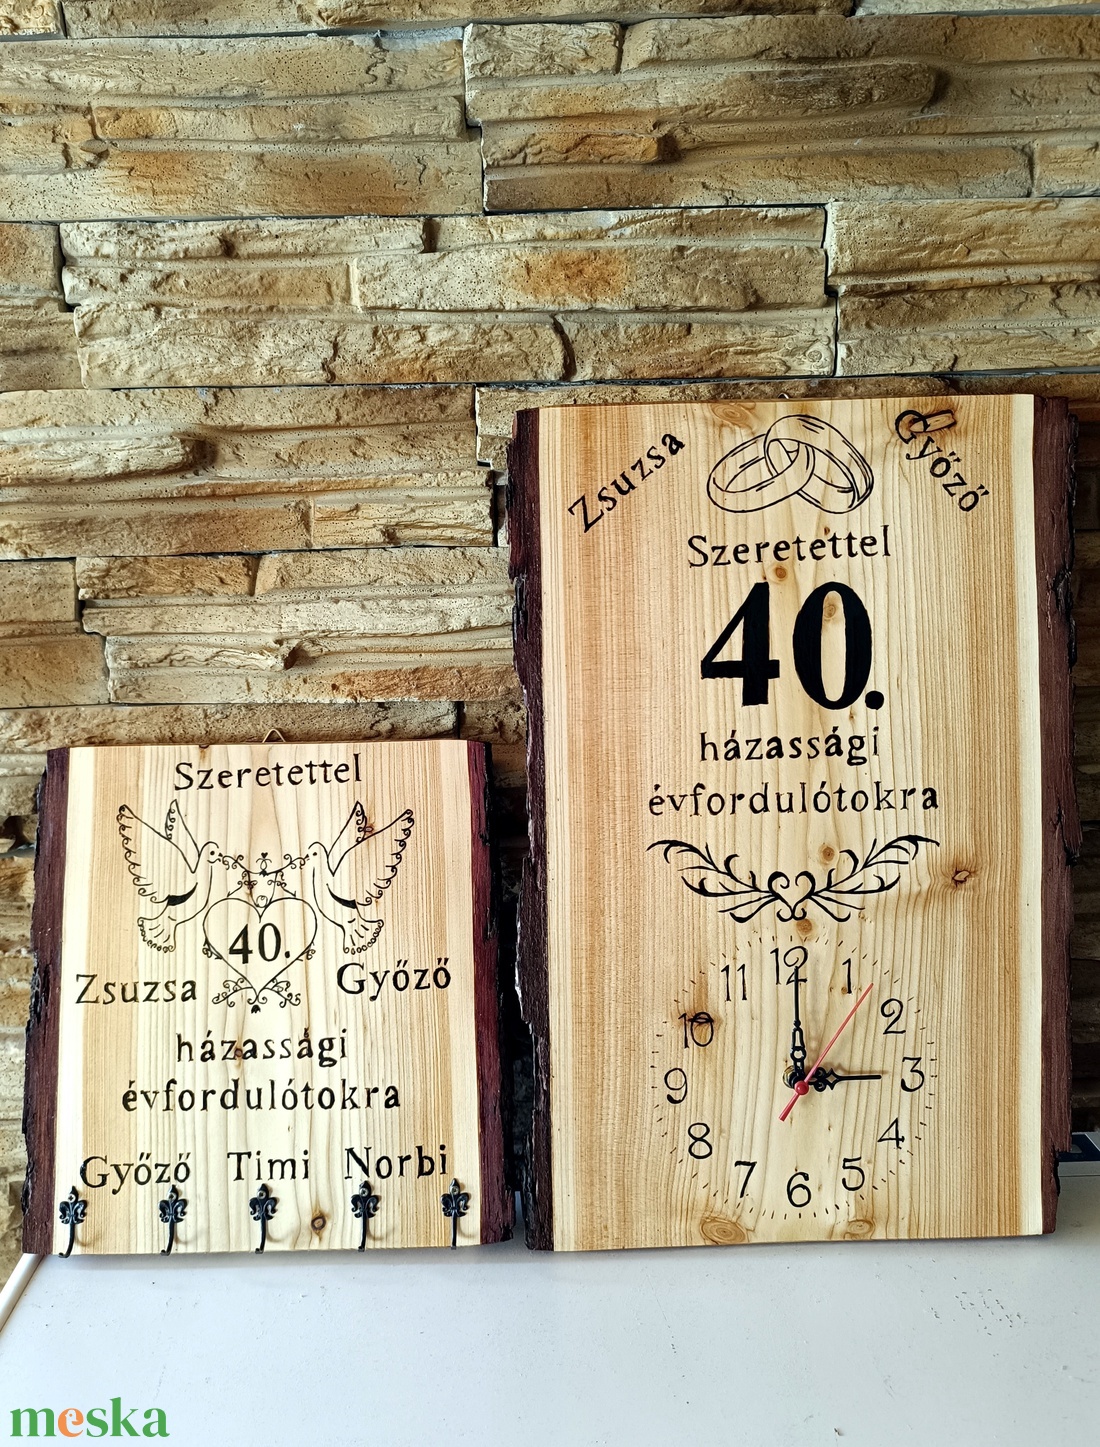 Szeretettel
40.
Zsuzsa Győző
házassági
évfordulótokra
Győző Timi Norbi
Zsuzsa Győző
Szeretettel
40.
házassági
évfordulótokra
12
1
2
3
4
5
6
7
8
9
10
11
meska